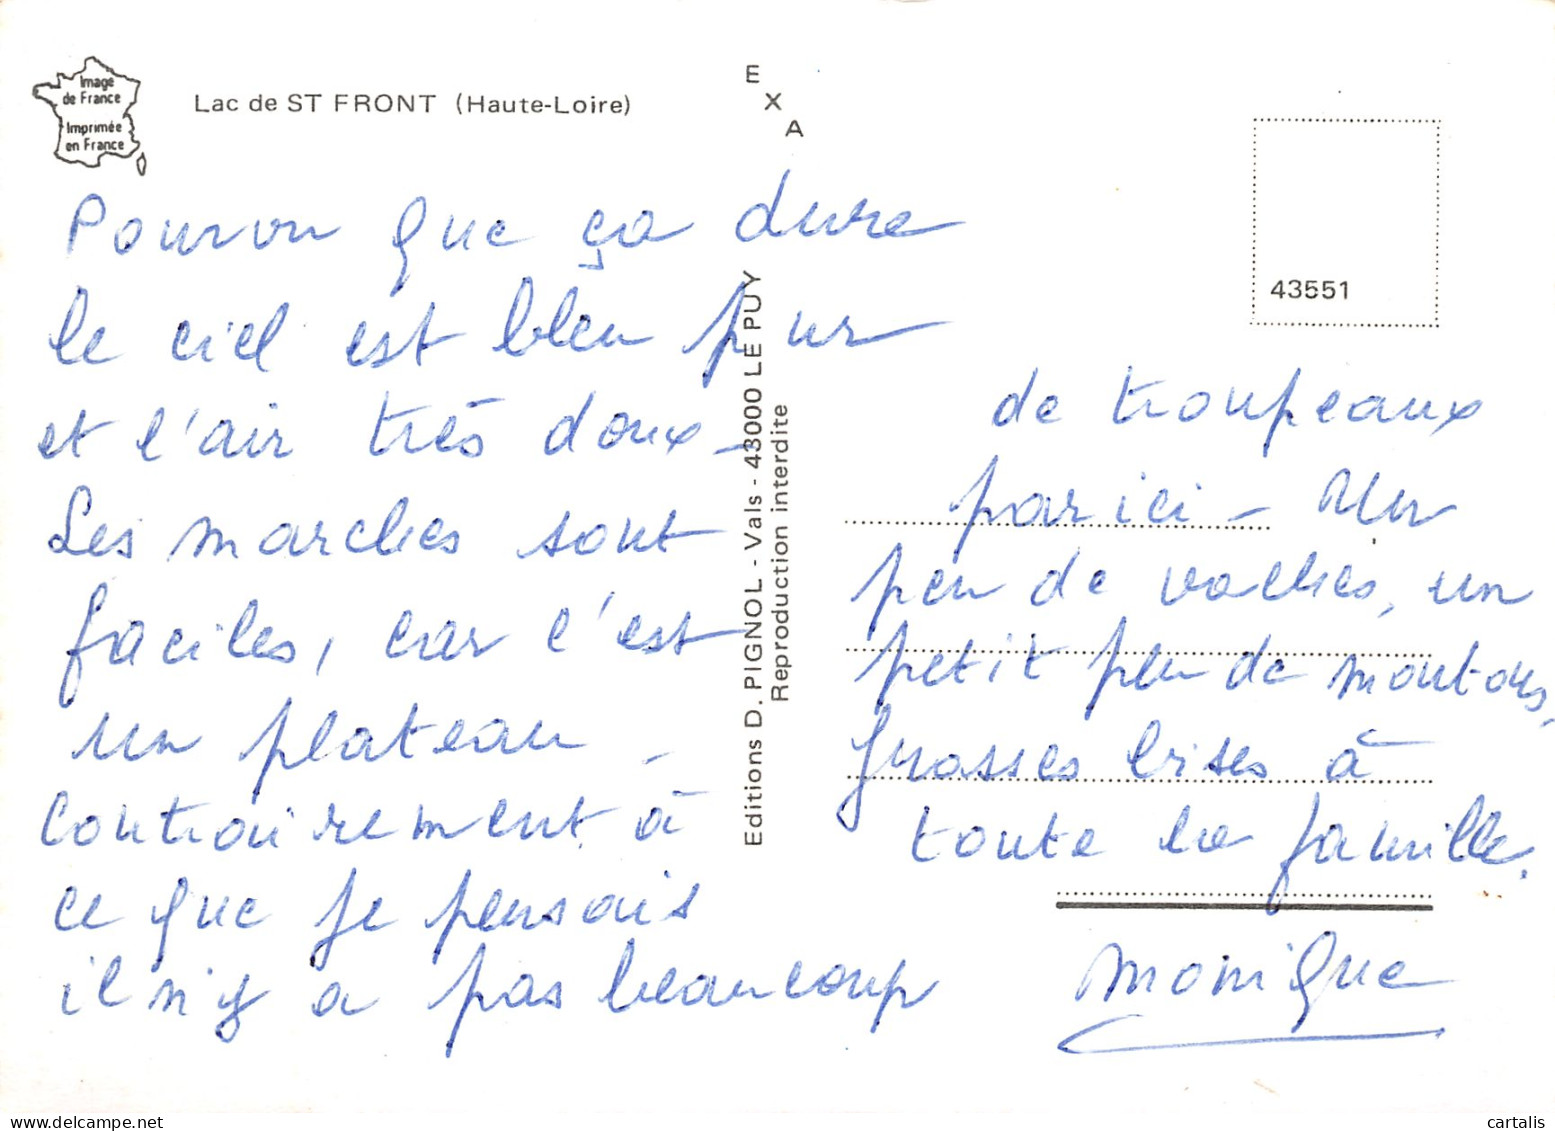 Image
de France
Imprimée
en France
Lac de ST FRONT (Haute-Loire)
E
X
A
43551
Editions D. PIGNOL - Vals - 43000 LE PUY
Reproduction interdite
Pourvu que ça dure
le ciel est bleu pur
et l'air très doux -
Les marches sont
faciles, car c'est
un plateau -
Contrairement à
ce que je pensais
il n'y a pas beaucoup
de troupeaux
par ici - Un
peu de vaches, un
petit peu de moutons,
Grosses bises à
toute la famille.
Monique
cartalis